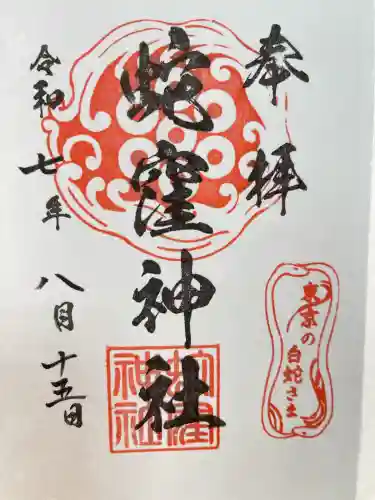 奉拝
蛇窪神社
令和七年
八月十五日
東京の
白蛇さま
蛇窪
神社